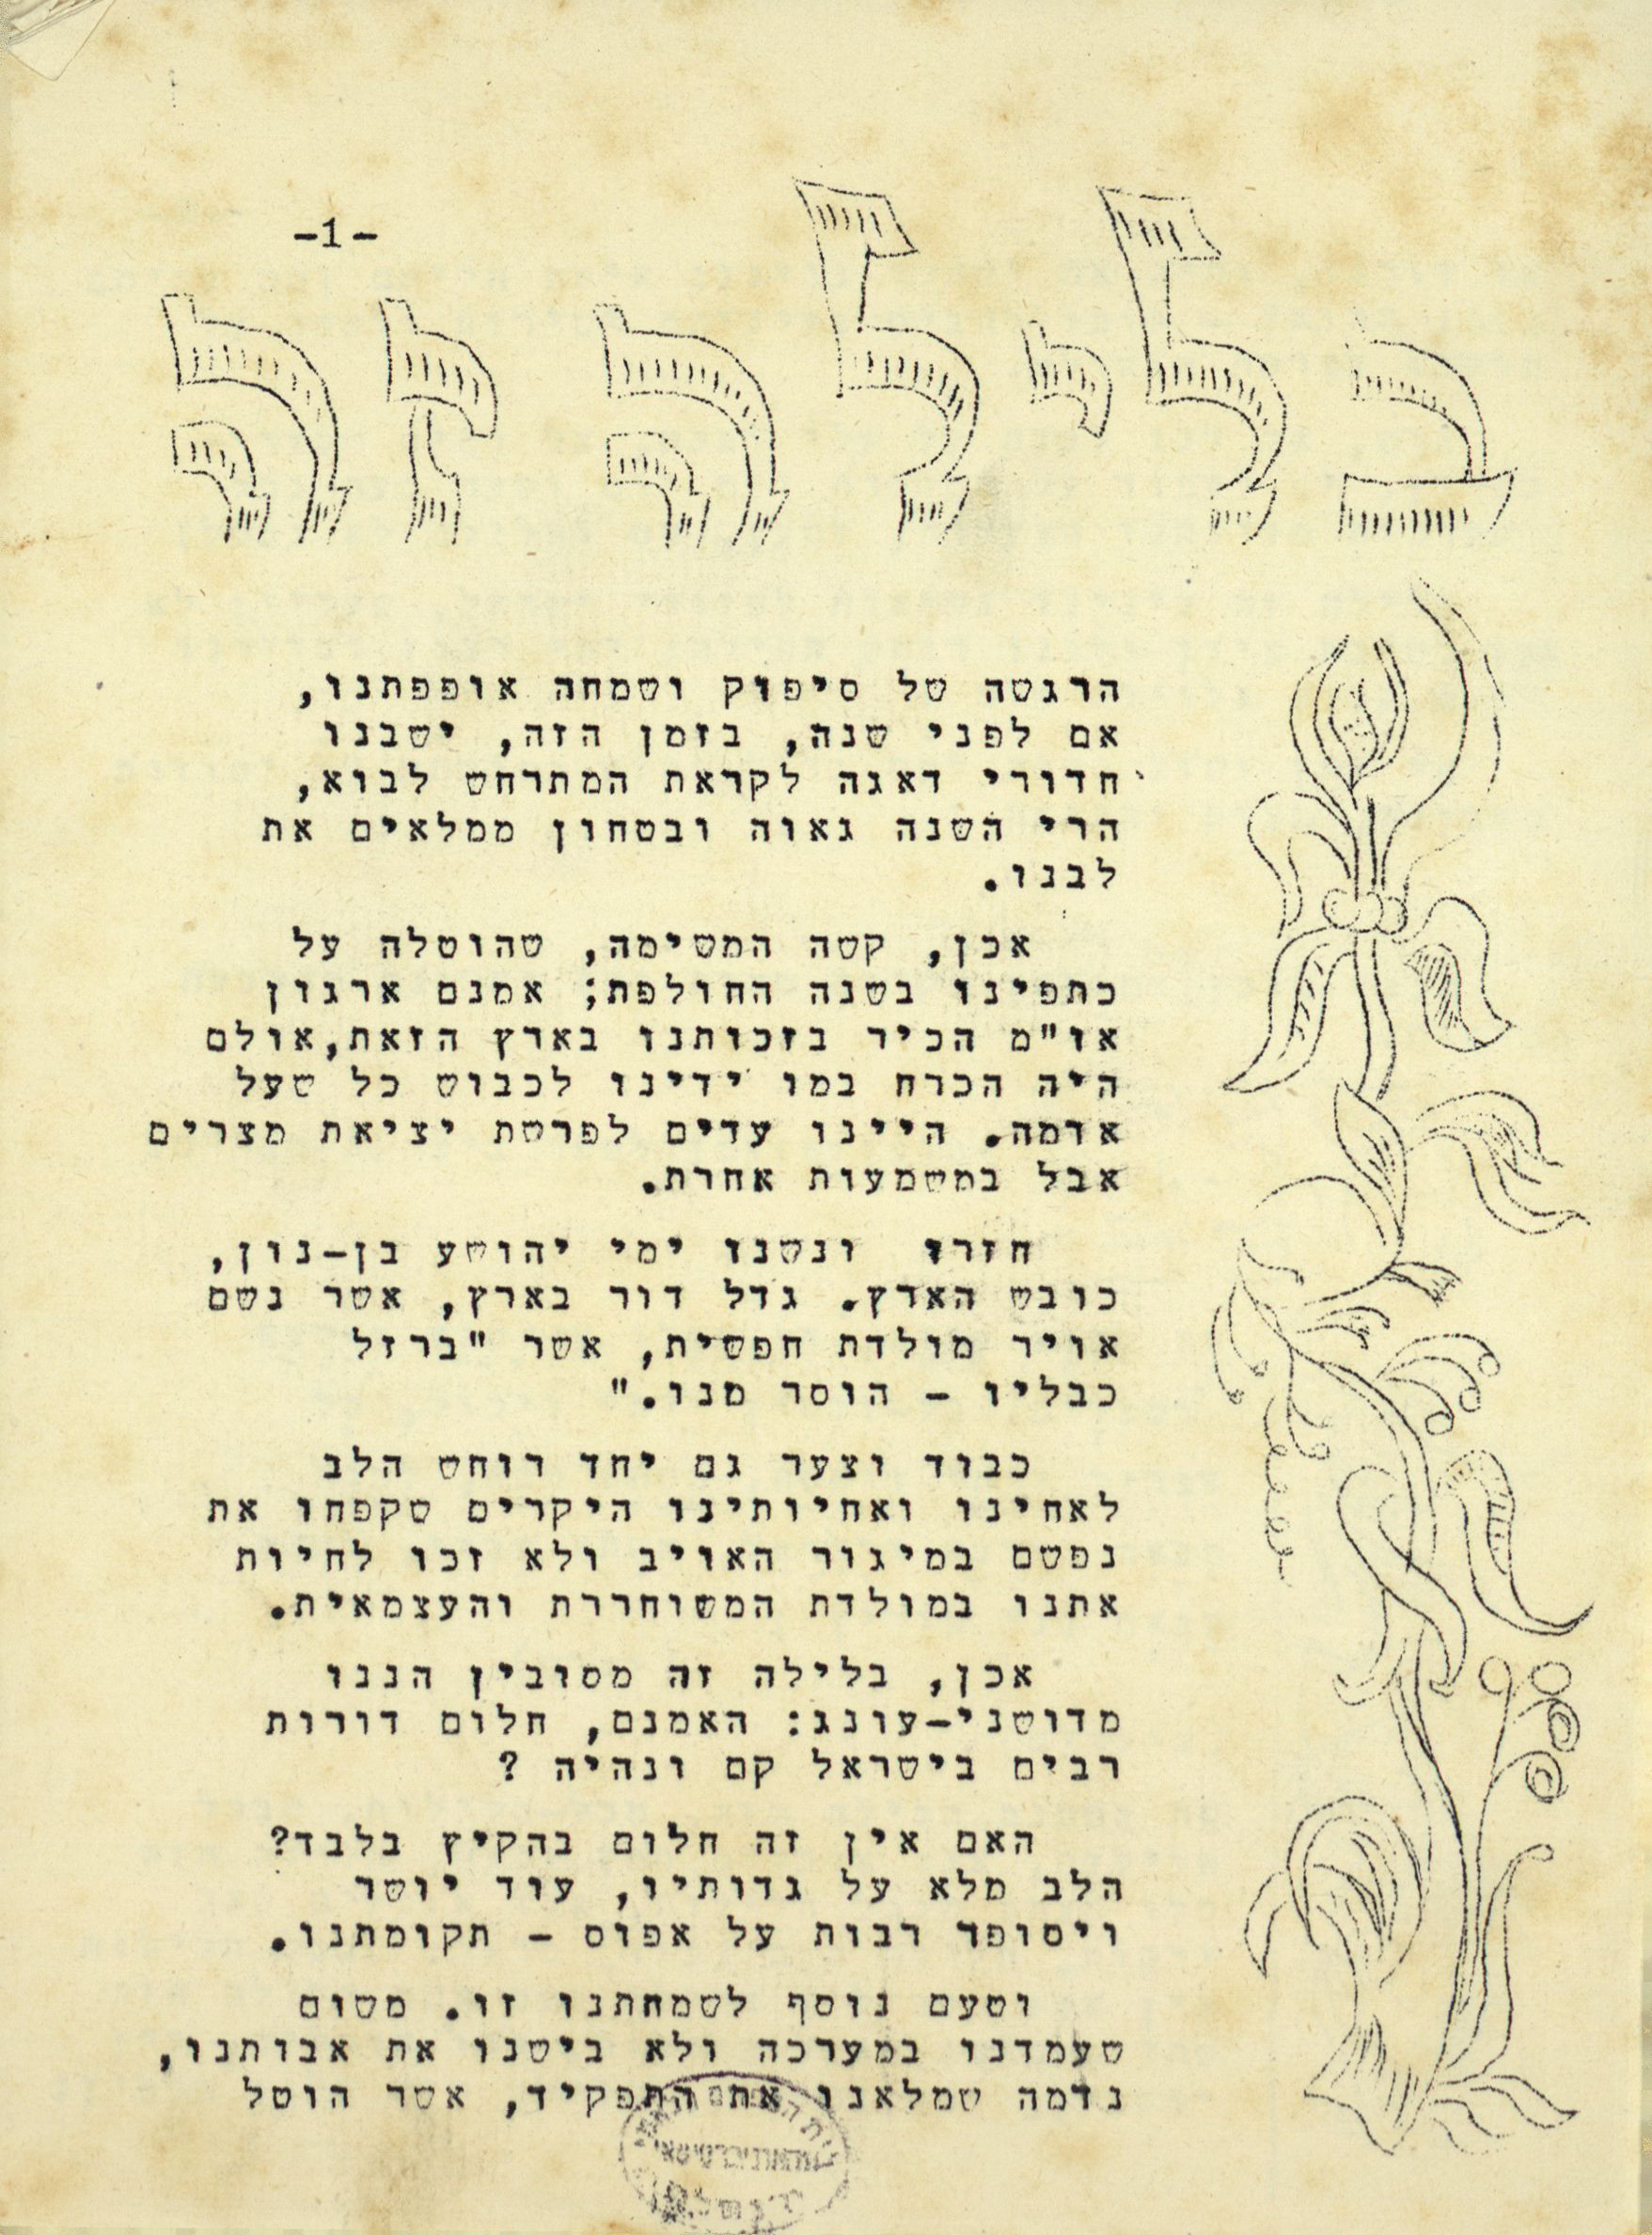 -1-
בליל הזה
הרגשה של סיפוק ושמחה אופפתנו,
אם לפני שנה, בזמן הזה, ישבנו
חדורי דאגה לקראת המתרחש לבוא,
הרי השנה גאוה ובטחון ממלאים את
לבנו.
אכן, קשה המשימה, שהוטלה על
כתפינו בשנה החולפת; אמנם ארגון
או"מ הכיר בזכותנו בארץ הזאת,אולם
היה הכרח במו ידינו לכבוש כל שעל
אדמה. היינו עדים לפרשת יציאת מצרים
אבל במשמעות אחרת.
חזרו ונשנו ימי יהושע בן-נון,
כובש הארץ. גדל דור בארץ, אשר נשם
אויר מולדת חפשית, אשר "ברזל
כבליו - הוסר מנו."
כבוד וצער גם יחד רוחש הלב
לאחינו ואחיותינו היקרים שקפחו את
נפשם במיגור האויב ולא זכו לחיות
אתנו במולדת המשוחררת והעצמאית.
אכן, בלילה זה מסובין הננו
מדושני-עונג: האמנם, חלום דורות
רבים בישראל קם ונהיה ?
האם אין זה חלום בהקיץ בלבד?
הלב מלא על גדותיו, עוד יושר
ויסופר רבות על אפוס - תקומתנו.
וטעם נוסף לשמחתנו זו. משום
שעמדנו במערכה ולא ביישנו את אבותנו,
נדמה שמלאנו את התפקיד, אשר הוטל